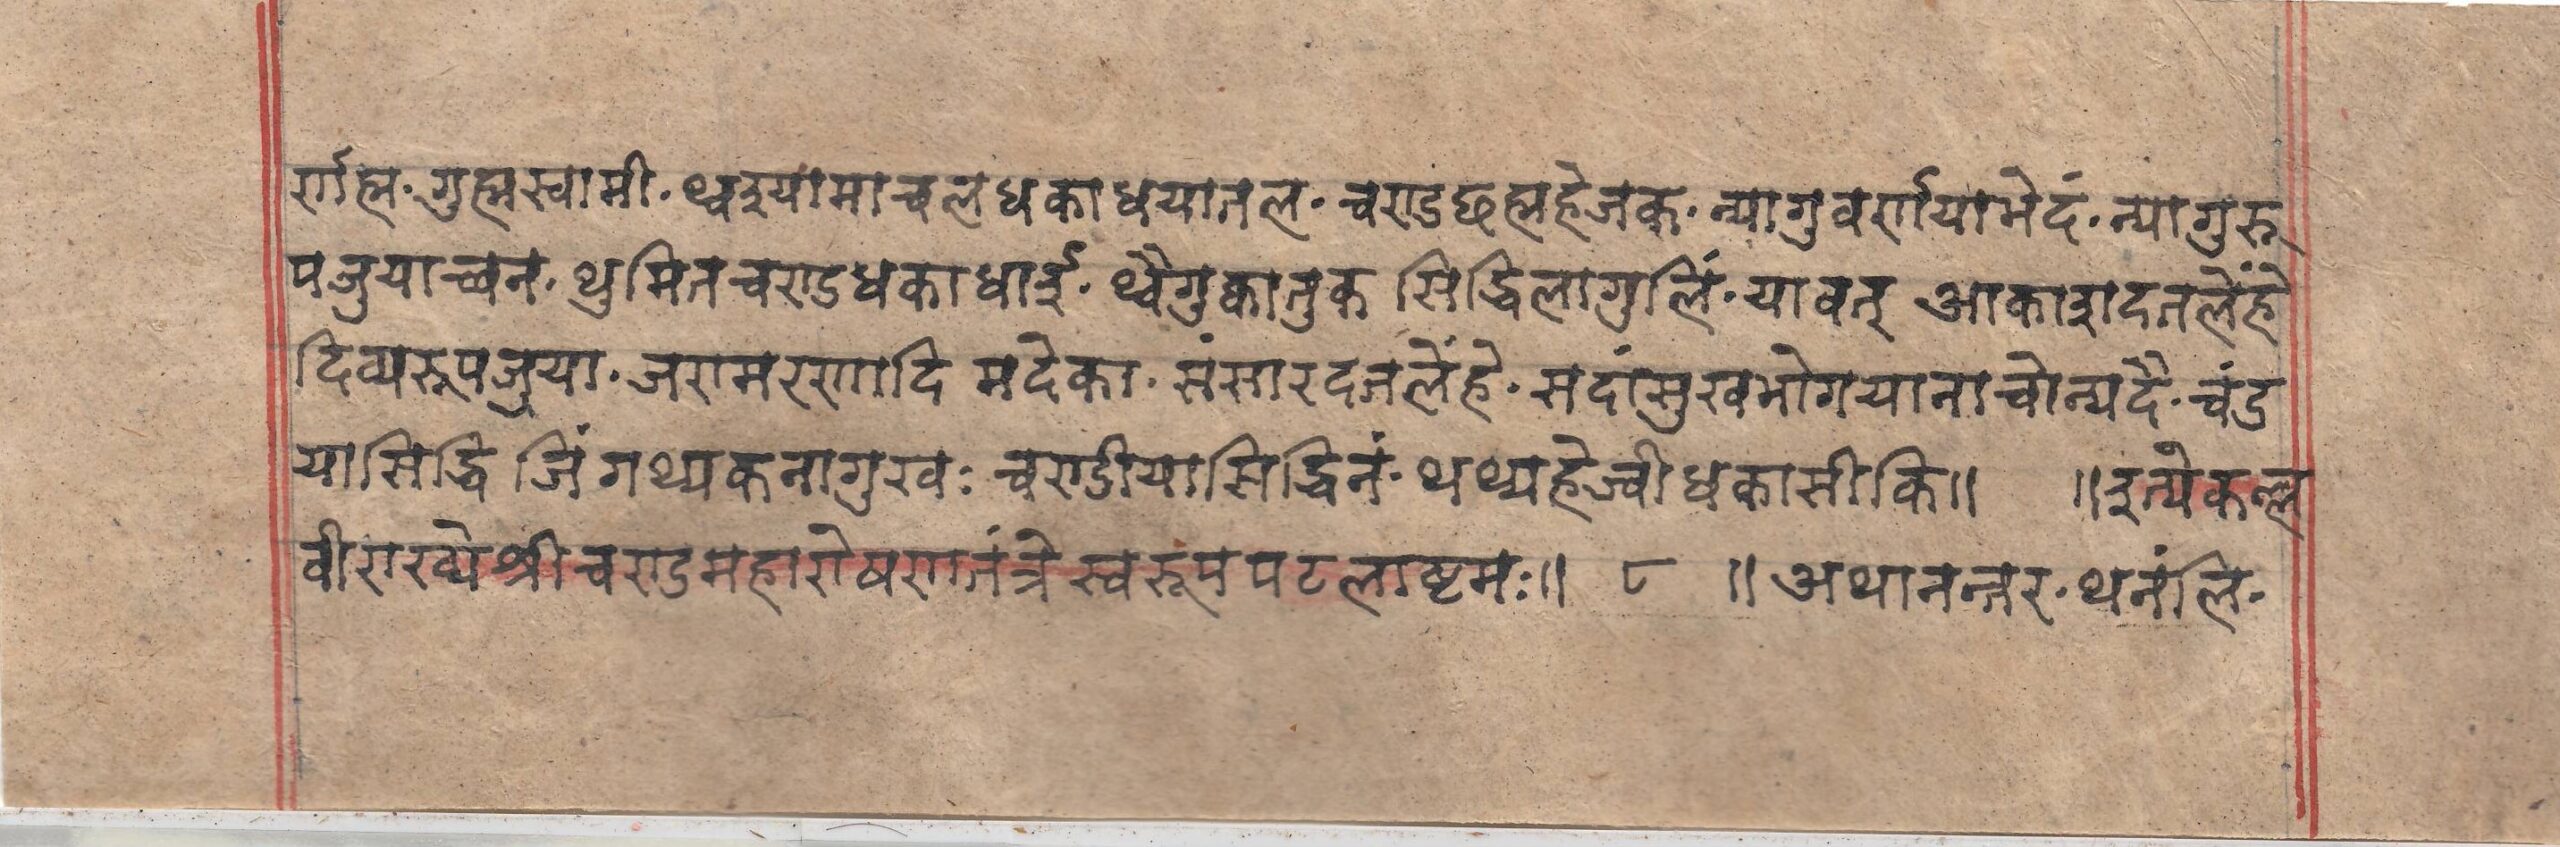 र्णह्म· गुह्मस्वामी· थ्वश्यामाचलधकाधयातल· चण्डछह्महेजक· न्यागुवर्णयाभेदं· न्यागुरू
पजुयाच्वन· थुमितचण्डधकाधाई· थ्वैगुकातुक सिद्धिलागुलिं· यावत् आकाशदतलेंहे
दिव्यरूपजुया· जरामरणादि मदेका· संसारदतलेंहे· सदांसुखभोगयानाचोन्यदै· चंड
यासिद्धि जिं गथ्यकनागुखः चण्डीयासिद्धिनं· थथ्यहेज्वीधकासीकि॥ ॥इत्येकल्ल
वीराख्येश्रीचण्डमहारोषणतंत्रेस्वरूपपटलाष्टमः॥ ८ ॥अथानन्तर· थनंलि·